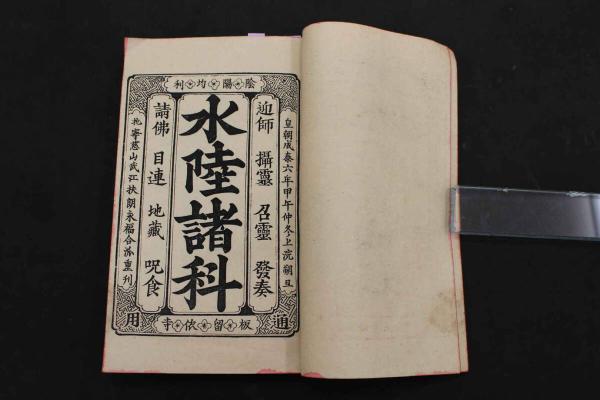 陰陽均利
皇朝成泰六年甲午仲冬上浣朔旦
迎師 攝靈 召靈 發奏
水陸諸科
請佛 目連 地藏 呪食
北寧慈山武江扶朗永福合派重刊
板留依寺
通用